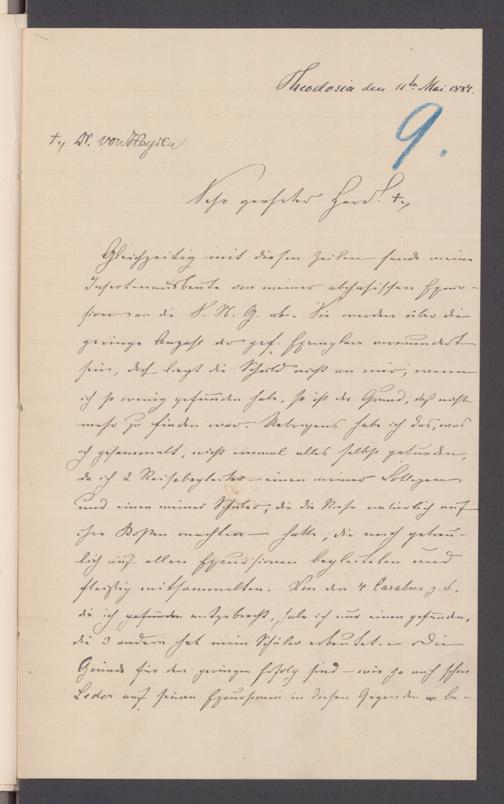 Theodosia den 11ten Mai 1887.
9.
+) Dr. von Heyden
Sehr geehrter Herr! +)
Gleichzeitig mit diesen Zeilen sende meine
Insectenausbeute von meiner abchasischen Excur-
sion an die S. N. G. ab. Sie werden über die
geringe Anzahl der gef. Exemplare verwundert
sein, doch liegt die Schuld nicht an mir, wenn
ich so wenig gefunden habe, so ist der Grund, daß nicht
mehr zu finden war. Uebrigens habe ich das, was
ich gesammelt, nicht einmal alles selbst gefunden,
da ich 2 Reisebegleiter – einen meiner Collegen
und einen meiner Schüler, die die Reise natürlich auf
ihre Kosten machten – hatte, die mich getreu-
lich auf allen Excursionen begleiteten und
fleißig mitsammelten. Von den 4 Carabus z. B.
die ich gefunden mitgebracht, habe ich nur einen gefunden,
die 3 andern hat mein Schüler erbeutet. – Die
Gründe für den geringen Erfolg sind – wie ja auch schon
Leder auf seinen Excursionen in diesen Gegenden be-